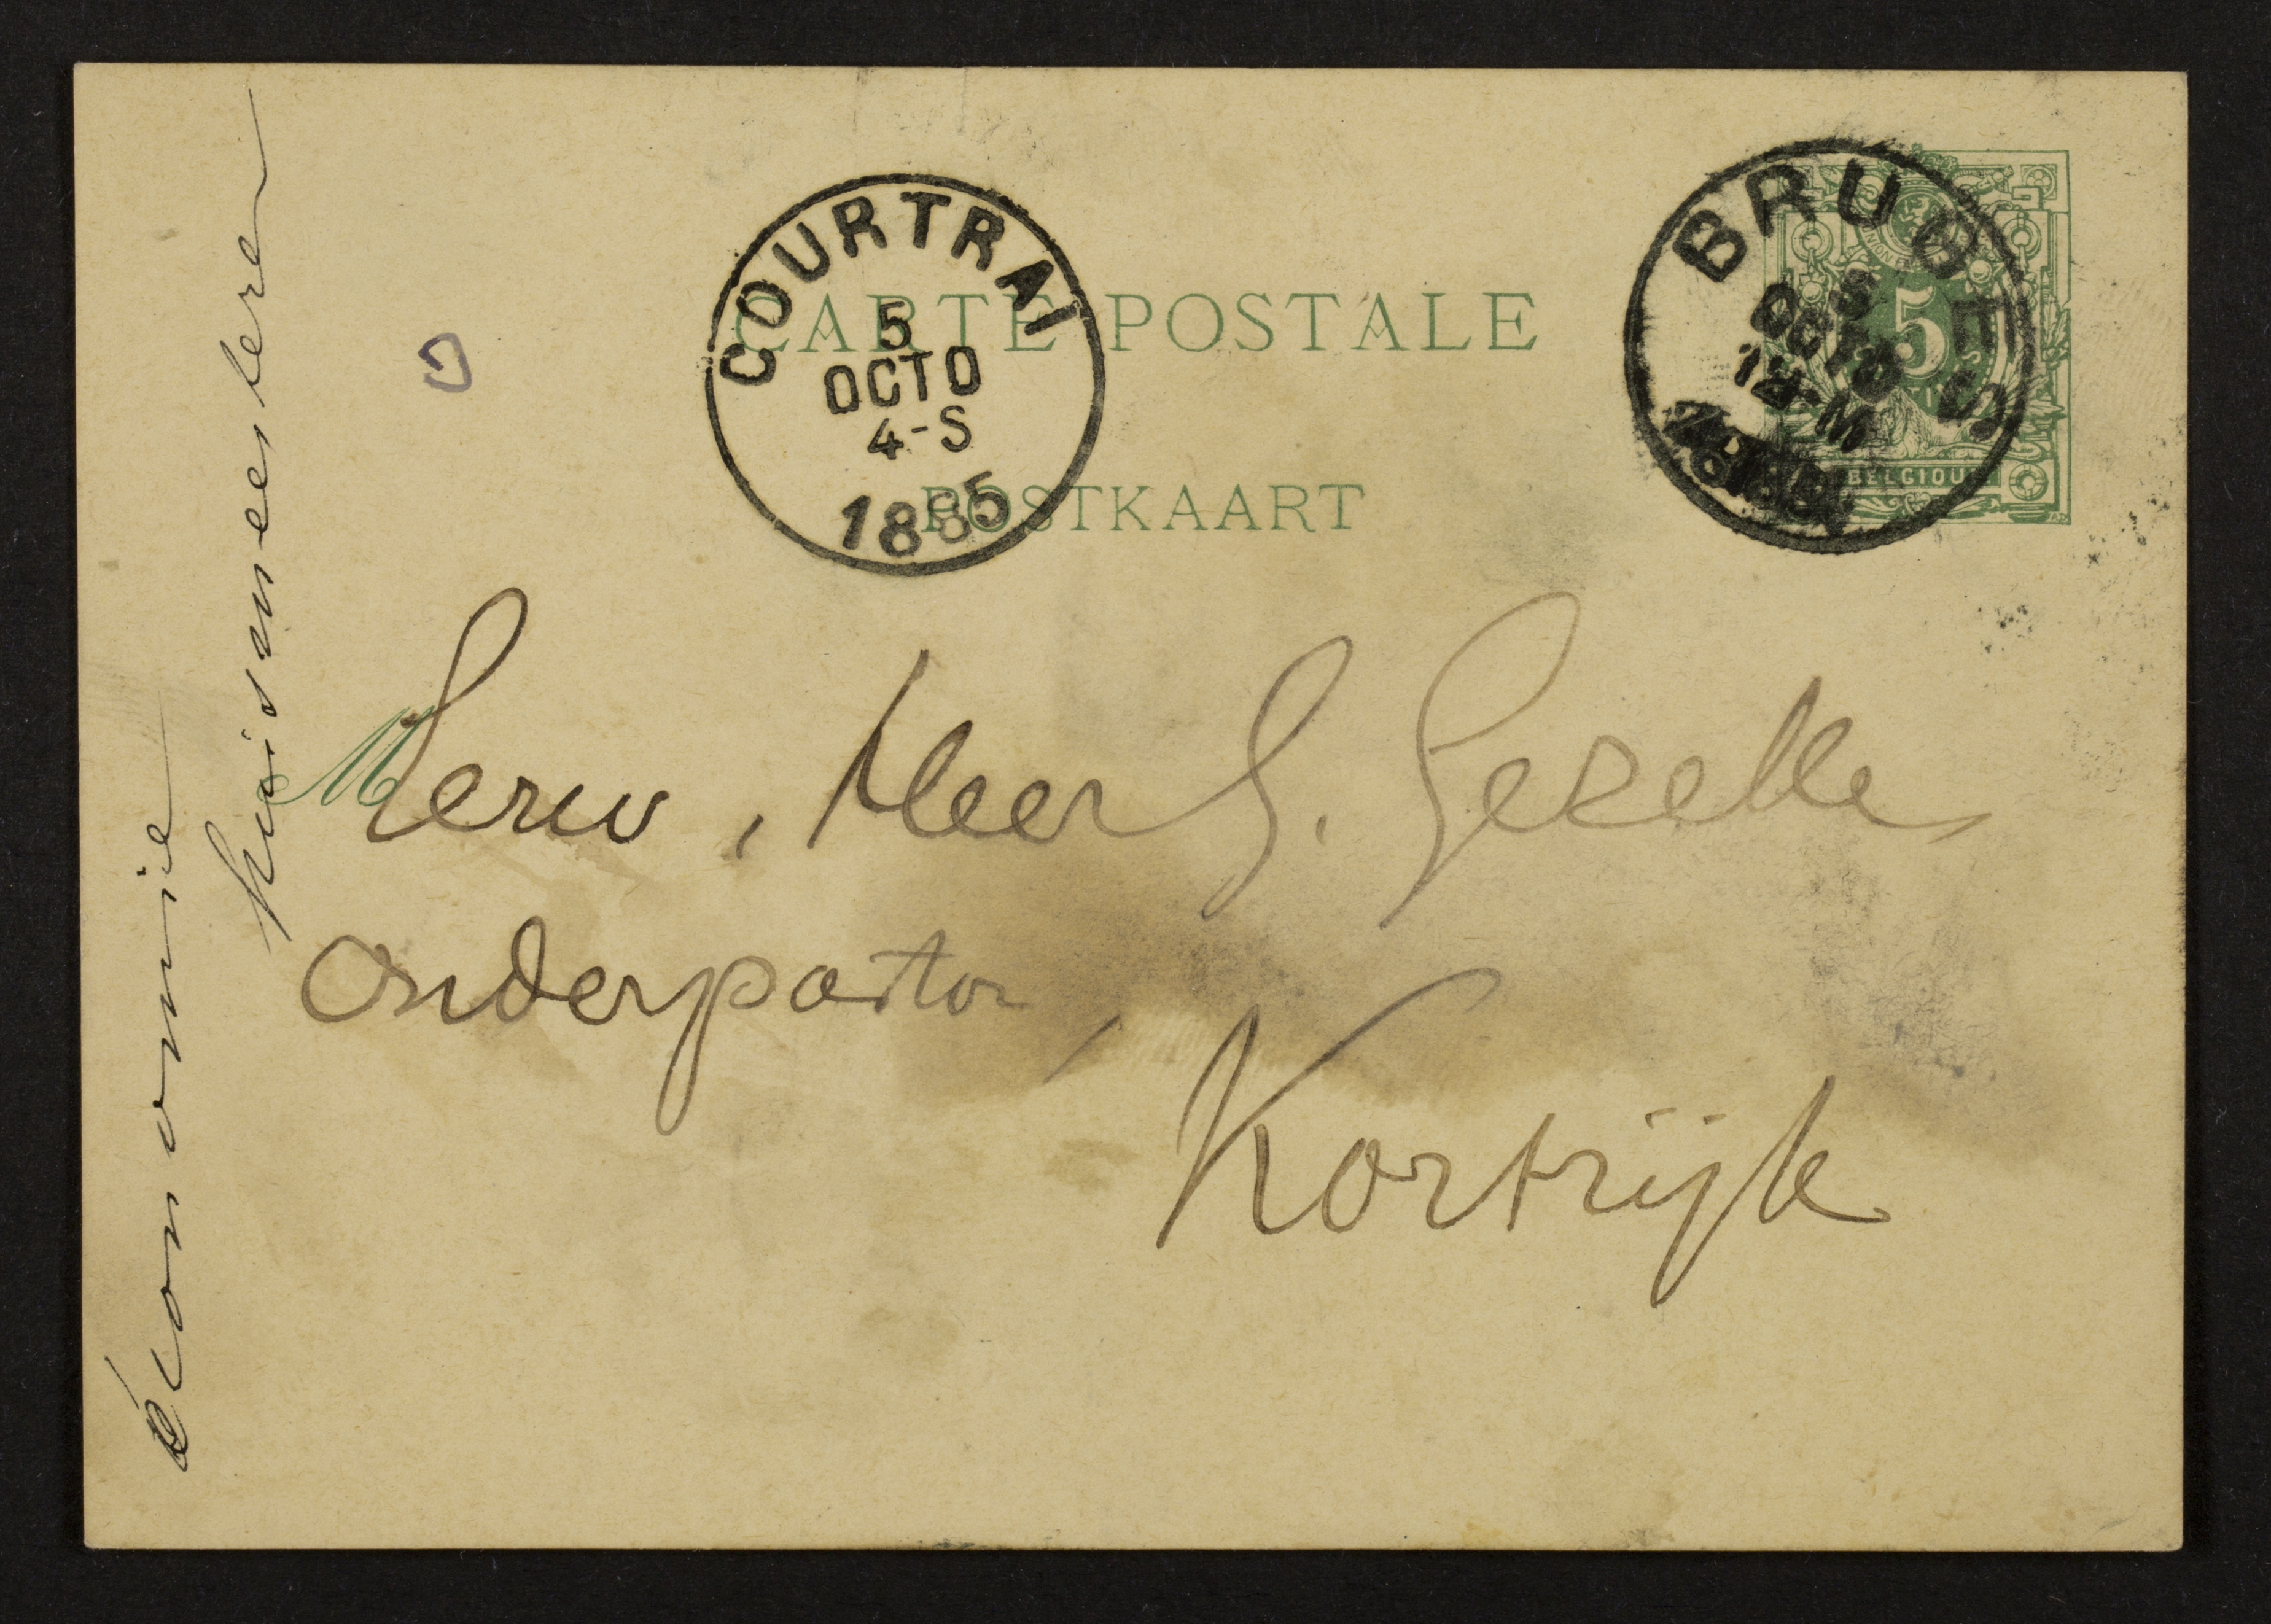 CARTE POSTALE
POSTKAART
COURTRAI
5
OCTO
4-S
1885
BRUGES
5
OCTO
12-M
5
BELGIQUE
M
Eerw, Heer G. Gezelle
Onderpastor,
Kortrijk
économie
huismeesteren